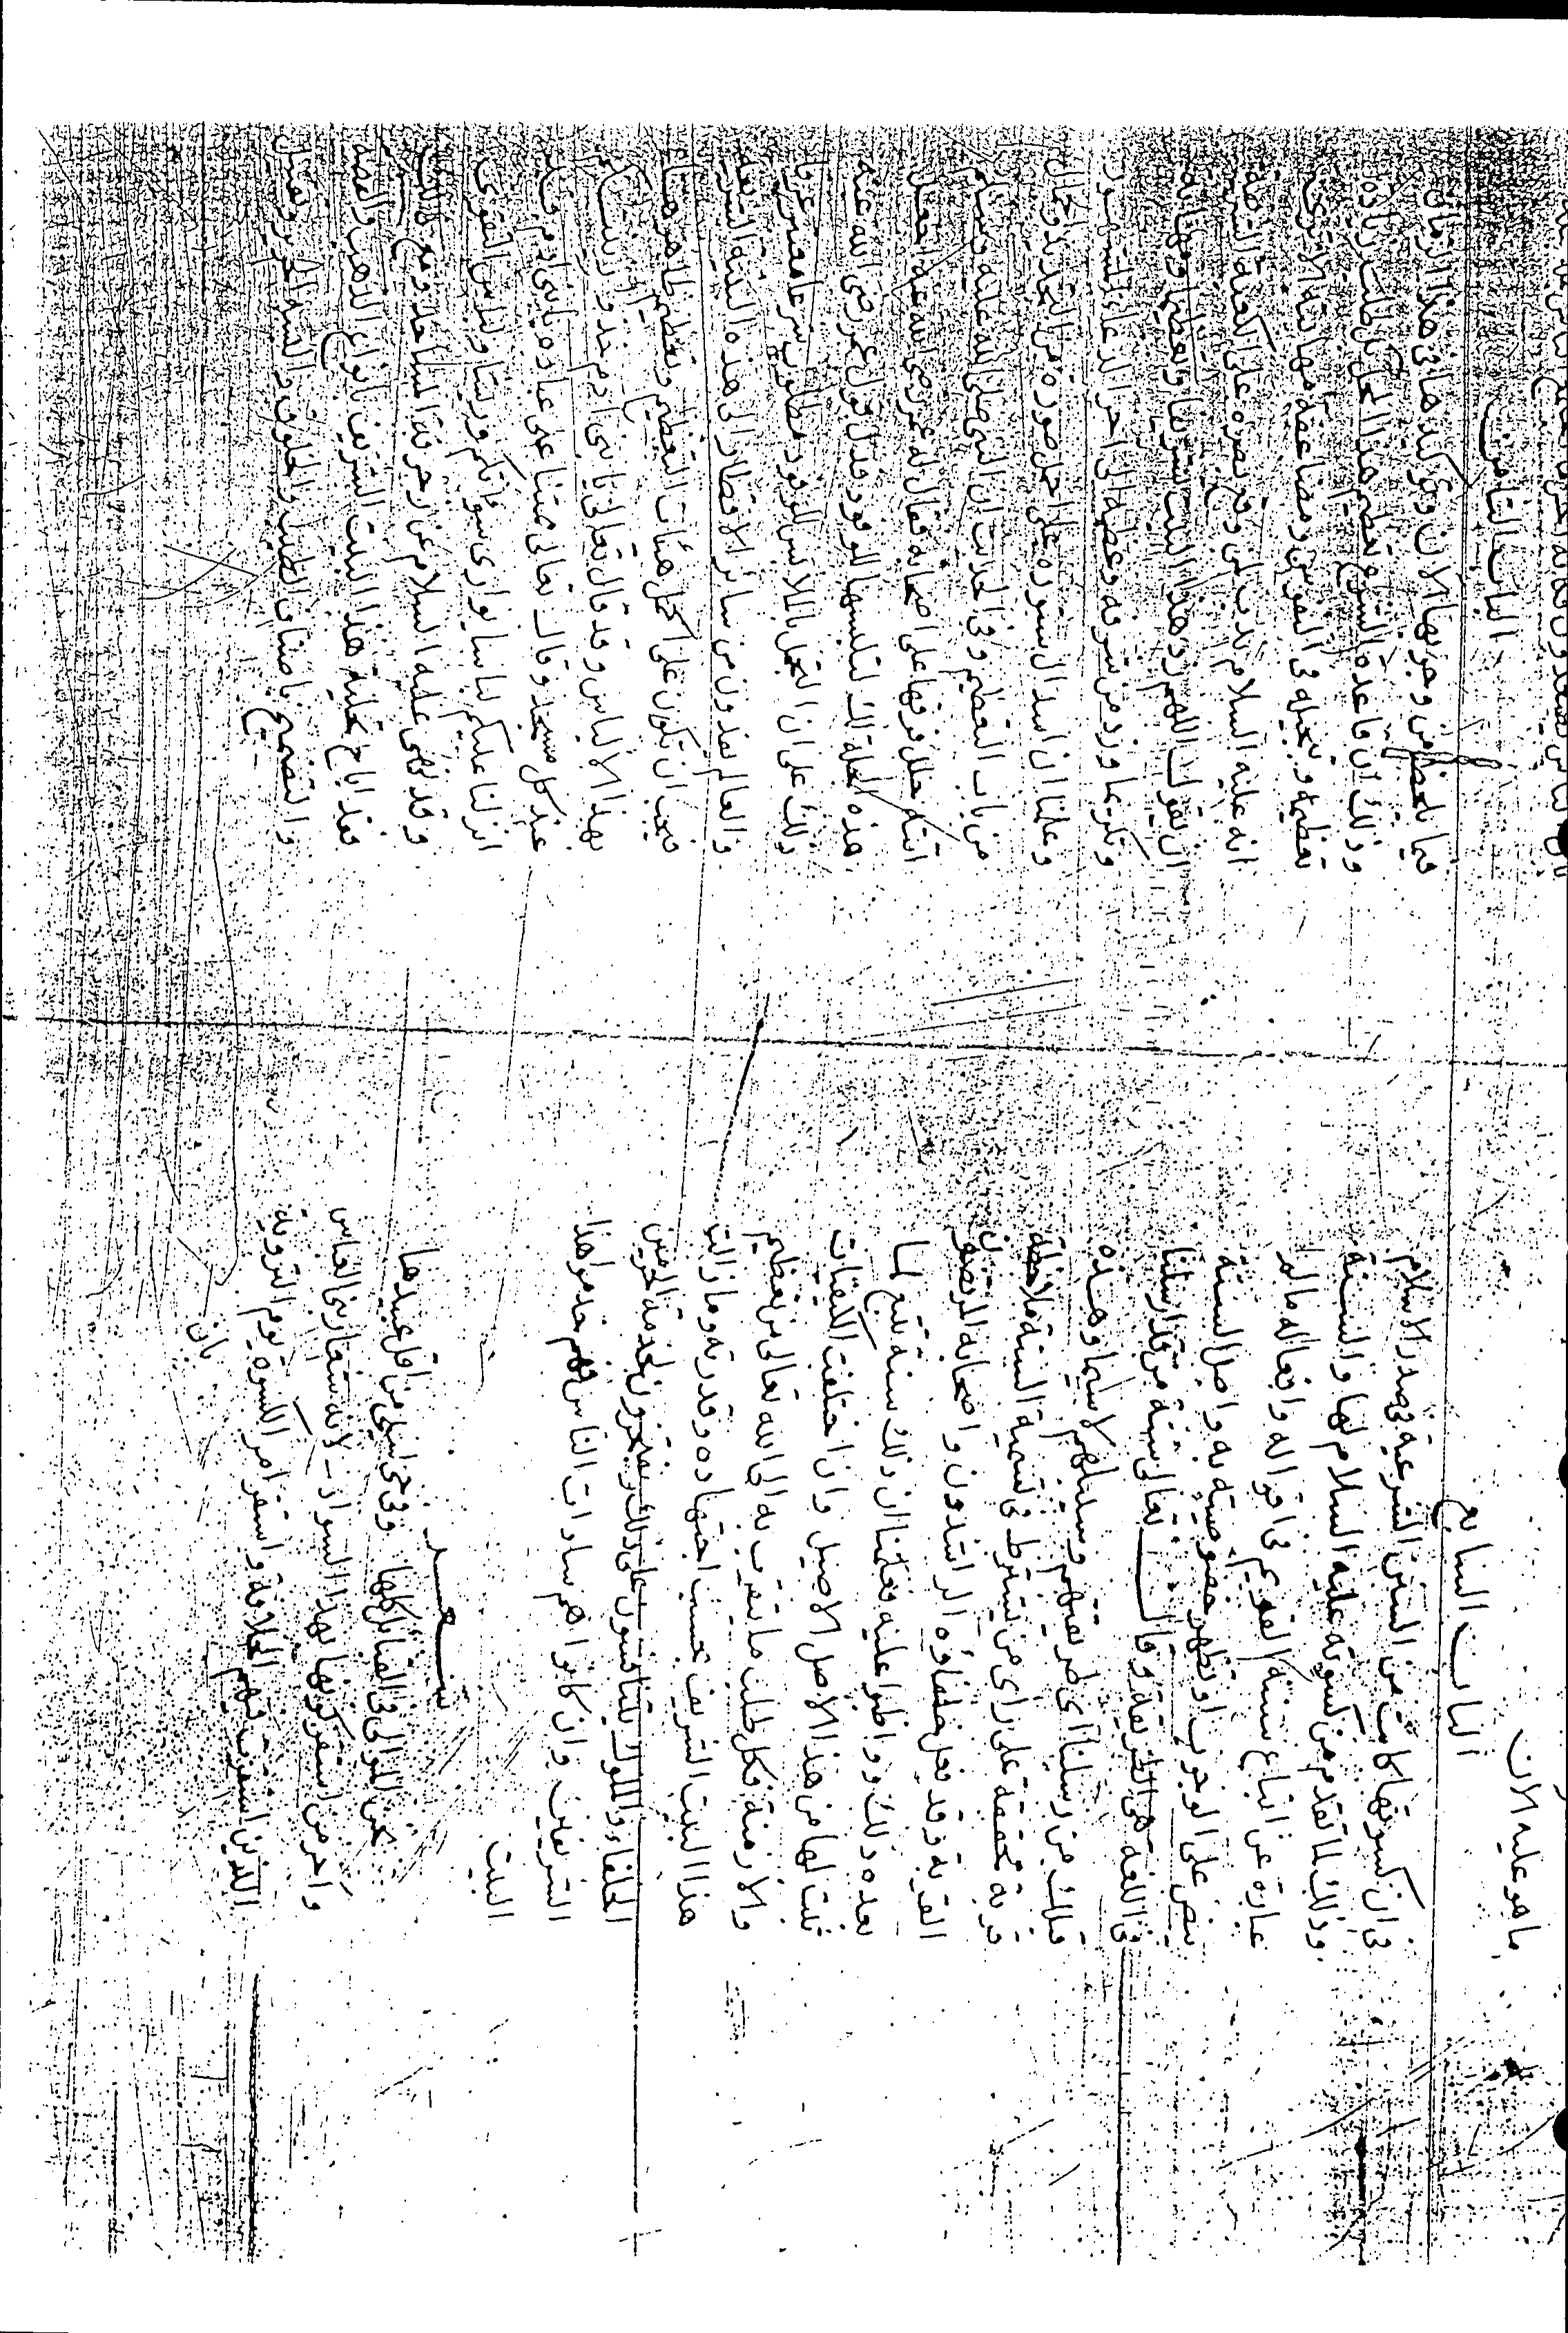 ما هو عليه الان
الباب السابع
في ان كسوتها كانت من السنن الشرعية في صدر الاسلام
وذلك لما تقدم من كسوته عليه السلام لها والسنة
عبارة عن اتباع سنته القويم في اقواله وافعاله مالم
ينص على الوجوب او تظهر خصوصيته به واصل السنة
في اللغة هي الطريقة وقال تعالى سنة من قد ارسلنا
قبلك من رسلنا اي طريقتهم وسبيلهم لا سيما وهذه
قربة محققة على راي من يشترط في تسمية السنة ملاحظة
القربة وقد فعل خلفاؤه الراشدون واصحابه المرتضون
بعده ذلك وواظبوا عليه فعلمنا ان ذلك سنة يتبع لما
ثبت لها من هذا الاصل الاصيل وان اختلفت الكيفيات
والازمنة فكل طلب ما يتقرب به الى الله تعالى من تعظيم
هذا البيت الشريف بحسب اجتهاده وقدرته وما زالت
الخلفاء والملوك يتنافسون على ذلك ويفتخرون بخدمة الحرمين
الشريفين وان كانوا هم سادات الناس فهم خدموا هذا
البيت
شعر
نحن الموالي في القبايل كلها وفي حي ليلى من اقل عبيدها
واخر من استقر كونها بهذا السواد لانه شعار بني العباس
الذين استقرت فيهم الخلافة واستقر امر الكسوة يوم التروية
بان
الباب الثامن
فيما يلحظ من وجوبها الان وتوكيدها في هذا الزمان
وذلك من قاعدة الشرع تعظيم هذا المحل وطلب زيادة
تعظيمه وتبجيله في النفوس ومضاعفة مهابته الا ترى
انه عليه السلام ندب لمن وقع بصره على الكعبة الشريفة
ان يقول اللهم زد هذا البيت تشريفا وتعظيما ومهابة
وتكريما وزد من شرفه وعظمه الى اخر الدعاء المشهور
وعلمنا ان اسدال ستوره على اجمل صورة من التجديد والجمال
من باب التعظيم وفي الحديث ان النبي صلى الله عليه وسلم
اتته حلل ففرقها على اصحابه فقال له عمر رضي الله عنه اجعل
هذه الحلة لك لتلبسها للوفود فدل قول عمر رضي الله عنه
ذلك على ان التجمل بالملابس للوفود مطلوب شرعا معتبر عرفا
والعالم يفدون من سائر الاقطار الى هذه البنية الشريفة
فيجب ان تكون على اجمل هيئات التعظيم وتعظيم ظاهرها
بهذا الالباس وقد قال تعالى يا بني ادم خذوا زينتكم
عند كل مسجد وقال تعالى ممتنا على عباده يا بني ادم قد
انزلنا عليكم لباسا يواري سوآتكم وريشا ولباس التقوى
وقد نهى عليه السلام عن زخرفة المساجد ومع ذلك
فقد اباح تحلية هذا البيت الشريف بانواع الذهب والفضة
والتضميخ باصناف الطيب والخلوق